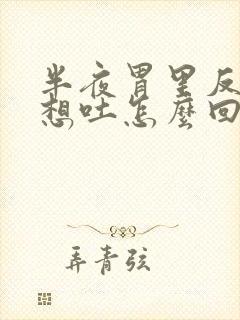 半夜胃里反
想吐怎麼回
弄青弦